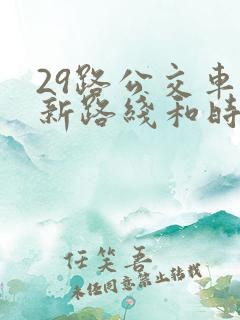 29路公交车
新路线和时
任笑吾
未经同意禁止转载